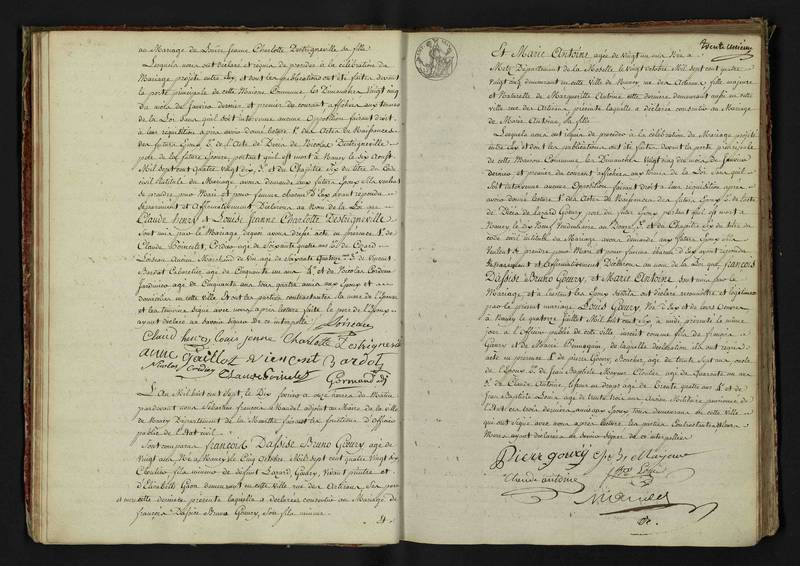 au Mariage de Louise Jeanne Charlotte Destrigneville sa fille
Lesquels nous ont déclaré et requis de procéder à la célébration du
Mariage projeté entre eux, et dont les publications ont été faites devant
la porte principale de cette Maison Commune les Dimanches vingt cinq
du mois de janvier dernier et premier du courant affichées aux termes
de la Loi sans qu'il soit intervenu aucune opposition faisant droit
à leur réquisition après avoir donné lecture 1° des Actes de Naissances
des futurs Epoux 2° de l'Acte de Décès de Nicolas Destrigneville
père de la future Epouse portant qu'il est mort à Nancy le six Août
Mil sept cent quatre vingt 3° et du Chapitre six du titre du Code
civil intitulé du Mariage avons demandé aux futurs Epoux s'ils veulent
se prendre pour Mari et pour femme chacun d'Eux ayant répondu
séparément et affirmativement Déclarons au Nom de la Loi que
Claude Henry et Louise Jeanne Charlotte Destrigneville
sont unis par le Mariage de quoi avons dressé acte en présence 1° de
Claude Poincelet, Cordier agé de soixante quatre ans 2° de
Loiseau ancien Marchand de Vin agé de soixante quatorze 3° de Vincent
Bardot Cabaretier agé de Cinquante un ans 4° et de Nicolas Cordier
Jardinier agé de Cinquante ans tous quatre amis aux Epoux et
domiciliés en cette ville et ont les parties contractantes la mère de l'Epouse
et les témoins signé avec nous après lecture faite le père de l'Epoux
ayant déclaré ne savoir signer de ce interpellé
Loiseau
Claude henry Louis jenne Charlotte Destrignevill
anne Gaillot vincent Bardot
Nicolas Cordier Claude Poincelet Gormand adj
L'An Mil huit cent sept le Dix février à onze heures du Matin
pardevant nous Sébastien François Mandel adjoint au Maire de la ville
de Nancy Département de la Meurthe faisant les fonctions d'officier
public de l'Etat civil
Sont comparus françois D'assise Bruno Goury agé de
Vingt ans Né à Nancy le Cinq octobre Mil sept cent quatre vingt six
Cloutier fils mineur de défunt Lazard Goury, Vivant peintre et
d'Elisabeth demeurant en cette ville rue des Artisans, Ses père
et mère cette dernière présente laquelle a déclaré consentir au Mariage de
françois D'assise Bruno Goury, Son fils mineur.
Et
trente unième
Et Marie Antoine agée de Vingt un ans Née à
Metz Département de la Moselle le Vingt octobre Mil sept cent quatre
vingt cinq demeurant en cette Ville de Nancy rue des Artisans fille majeure
et Naturelle de Marguerite Antoine cette dernière demeurant aussi en cette
ville rue des Artisans, présente laquelle a déclaré consentir au Mariage
de Marie Antoine, Sa fille
Lesquels nous ont requis de procéder à la célébration du Mariage projeté
entre eux et dont les publications ont été faites devant la porte principale
de cette Maison Commune les Dimanches vingt cinq du mois de janvier
dernier et premier du courant affichées aux termes de la Loi sans qu'il
soit intervenu aucune Opposition faisant droit à leur réquisition après
avoir donné lecture 1° des Actes de Naissances des futurs Epoux 2° de l'acte
de Décès de Lazard Goury père du futur Epoux portant qu'il est mort à
Nancy le Neuf Vendémiaire an Douze 3° et du Chapitre six du titre du
code civil intitulé du Mariage avons demandé aux futurs Epoux s'ils
Veulent se prendre pour Mari et pour femme chacun d'Eux ayant répondu
séparément et affirmativement Déclarons au nom de la Loi que françois
D'assise Bruno Goury, et Marie Antoine sont unis par le
Mariage et à l'instant les Epoux susdits ont déclaré reconnaître et légitimer
par le présent mariage Louis Goury, Né d'Eux et de leurs œuvres
à Nancy le quatorze juillet Mil huit cent six à midi, présenté le même
jour à l'officier public de cette ville inscrit comme fils de françois
Goury et de Marie de laquelle déclaration ils ont requis
acte en présence 1° de pierre Goury, Boucher agé de trente Sept ans oncle
de l'Epoux 2° de Jean Baptiste Mayeur Cloutier agé de quarante un ans
3° de Claude Antoine agé de trente quatre ans 4° et de
Jean Baptiste Lami agé de trente trois ans ancien Militaire pensionné de
l'Etat ces trois derniers amis aux Epoux tous demeurant en cette ville
qui ont signé avec nous après lecture les parties Contractantes et leurs
Mères ayant déclaré ne savoir signer de ce interpellé
Pierre goury J B Mayeur
Claude antoine
Mandel